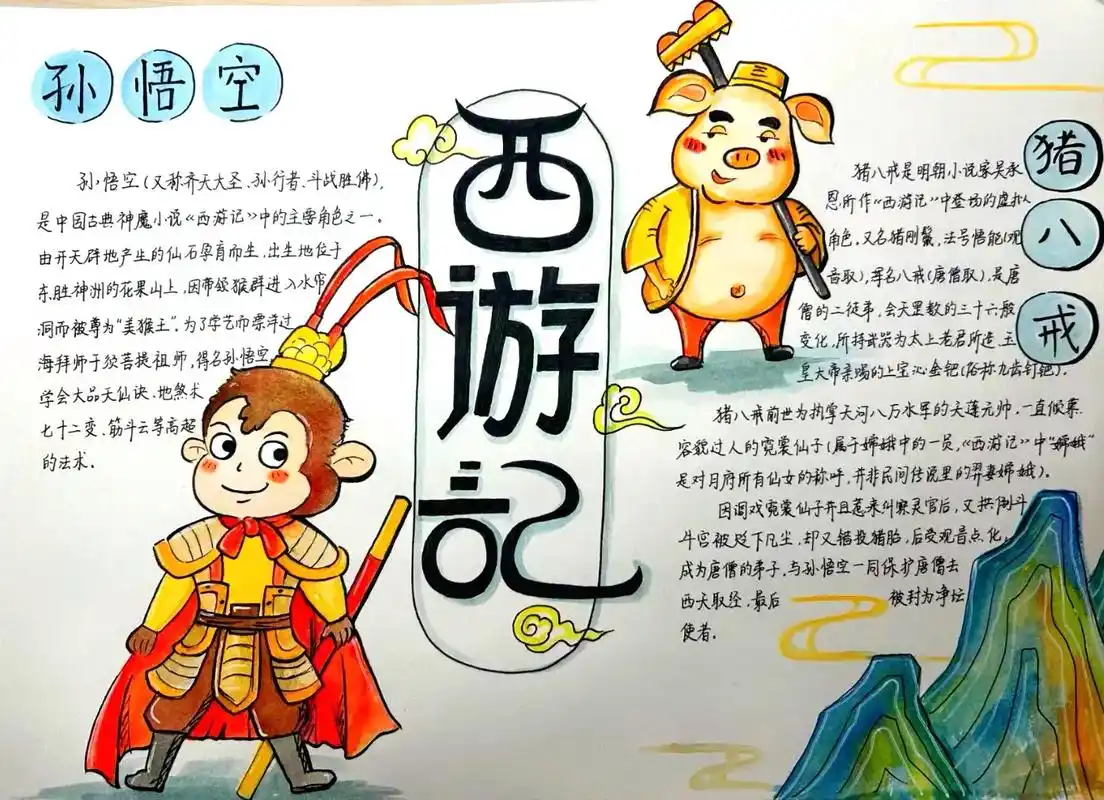 孙悟空
孙悟空(又称齐天大圣、孙行者、斗战胜佛),
是中国古典神魔小说《西游记》中的主要角色之一。
由开天辟地产生的仙石孕育而生,出生地位于
东胜神洲的花果山上,因带领猴群进入水帘
洞而被尊为“美猴王”。为了学艺而漂洋过
海拜师于须菩提祖师,得名孙悟空,
学会大品天仙诀、地煞术
七十二变、筋斗云等高超
的法术。
西游记
猪八戒
猪八戒是明朝小说家吴承
恩所作《西游记》中登场的虚拟
角色,又名猪刚鬣,法号悟能(观
音取),浑名八戒(唐僧取),是唐
僧的二徒事,会天罡数的三十六般
变化,所持武器为太上老君所造、玉
皇大帝亲赐的上宝沁金钯(俗称九齿钉钯)。
猪八戒前世为执掌天河八万水军的天蓬元帅,一直倾慕
容貌过人的霓裳仙子(属于嫦娥中的一员,《西游记》中“嫦娥”
是对月府所有仙女的称呼,并非民间传说里的羿妻嫦娥)。
因调戏霓裳仙子并且惹来纠察灵官后,又拱倒斗
斗宫被贬下凡尘,却又错投猪胎,后受观音点化,
成为唐僧的弟子,与孙悟空一同保护唐僧去
西天取经,最后被封为净坛
使者。